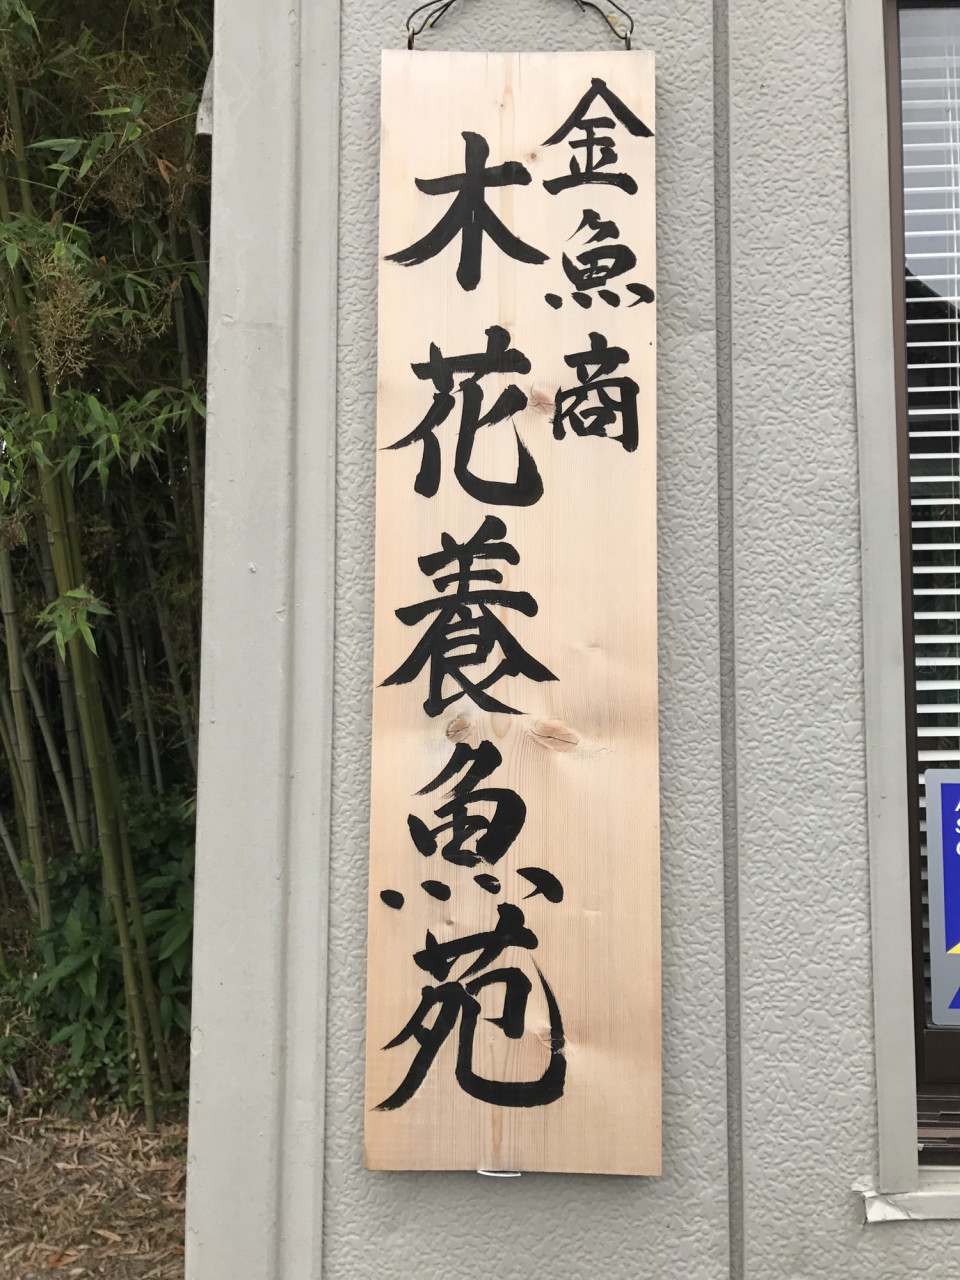 金魚商
木花養魚苑